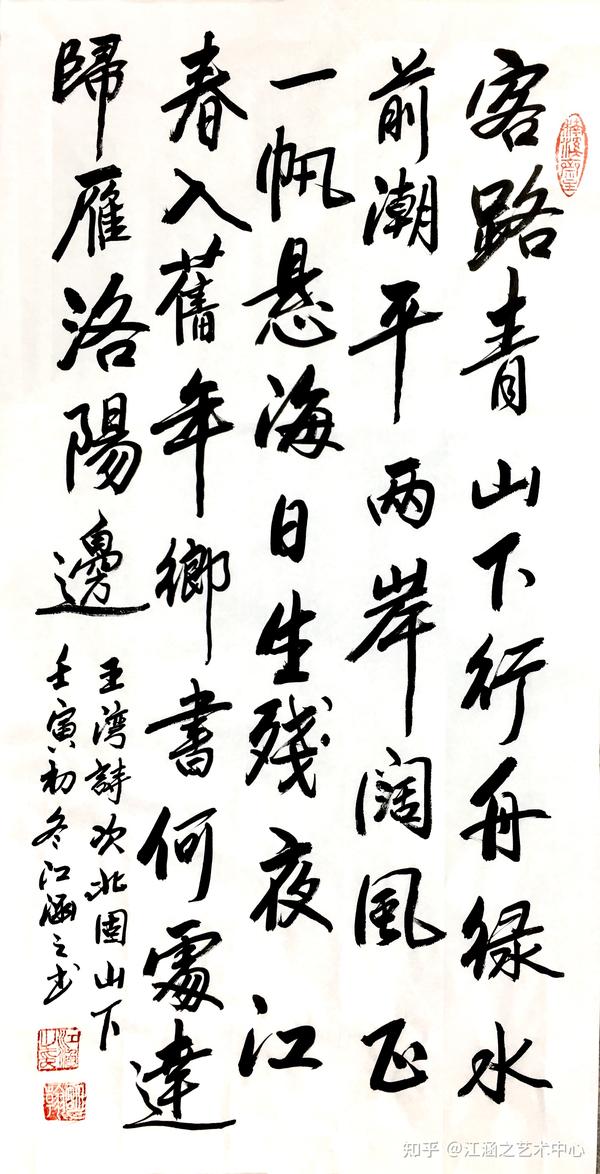 客路青山下行舟绿水
前潮平两岸阔風正
一帆悬海日生残夜江
春入舊年鄉書何處達
歸雁洛陽邊
王湾詩次北固山下
壬寅初冬江涵之书
知乎 @江涵之艺术中心